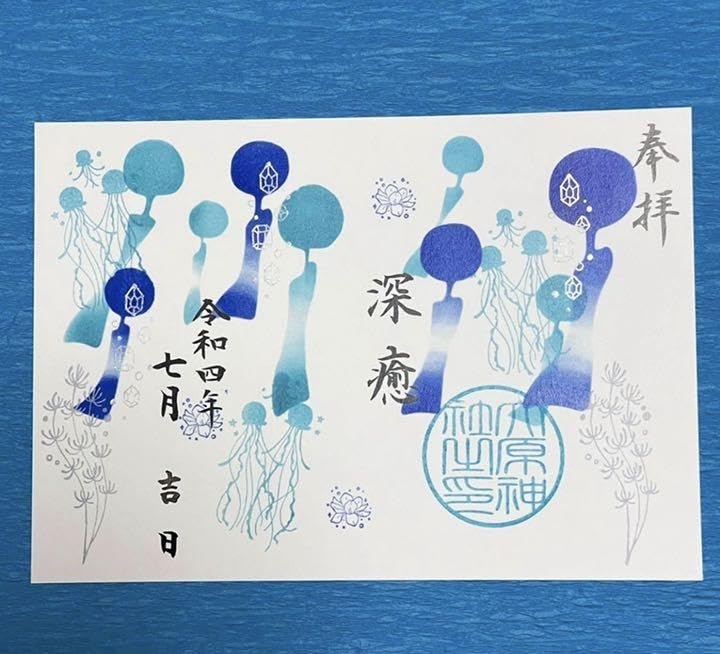 奉拝
深癒
大原神
社之印
令和四年
七月 吉日